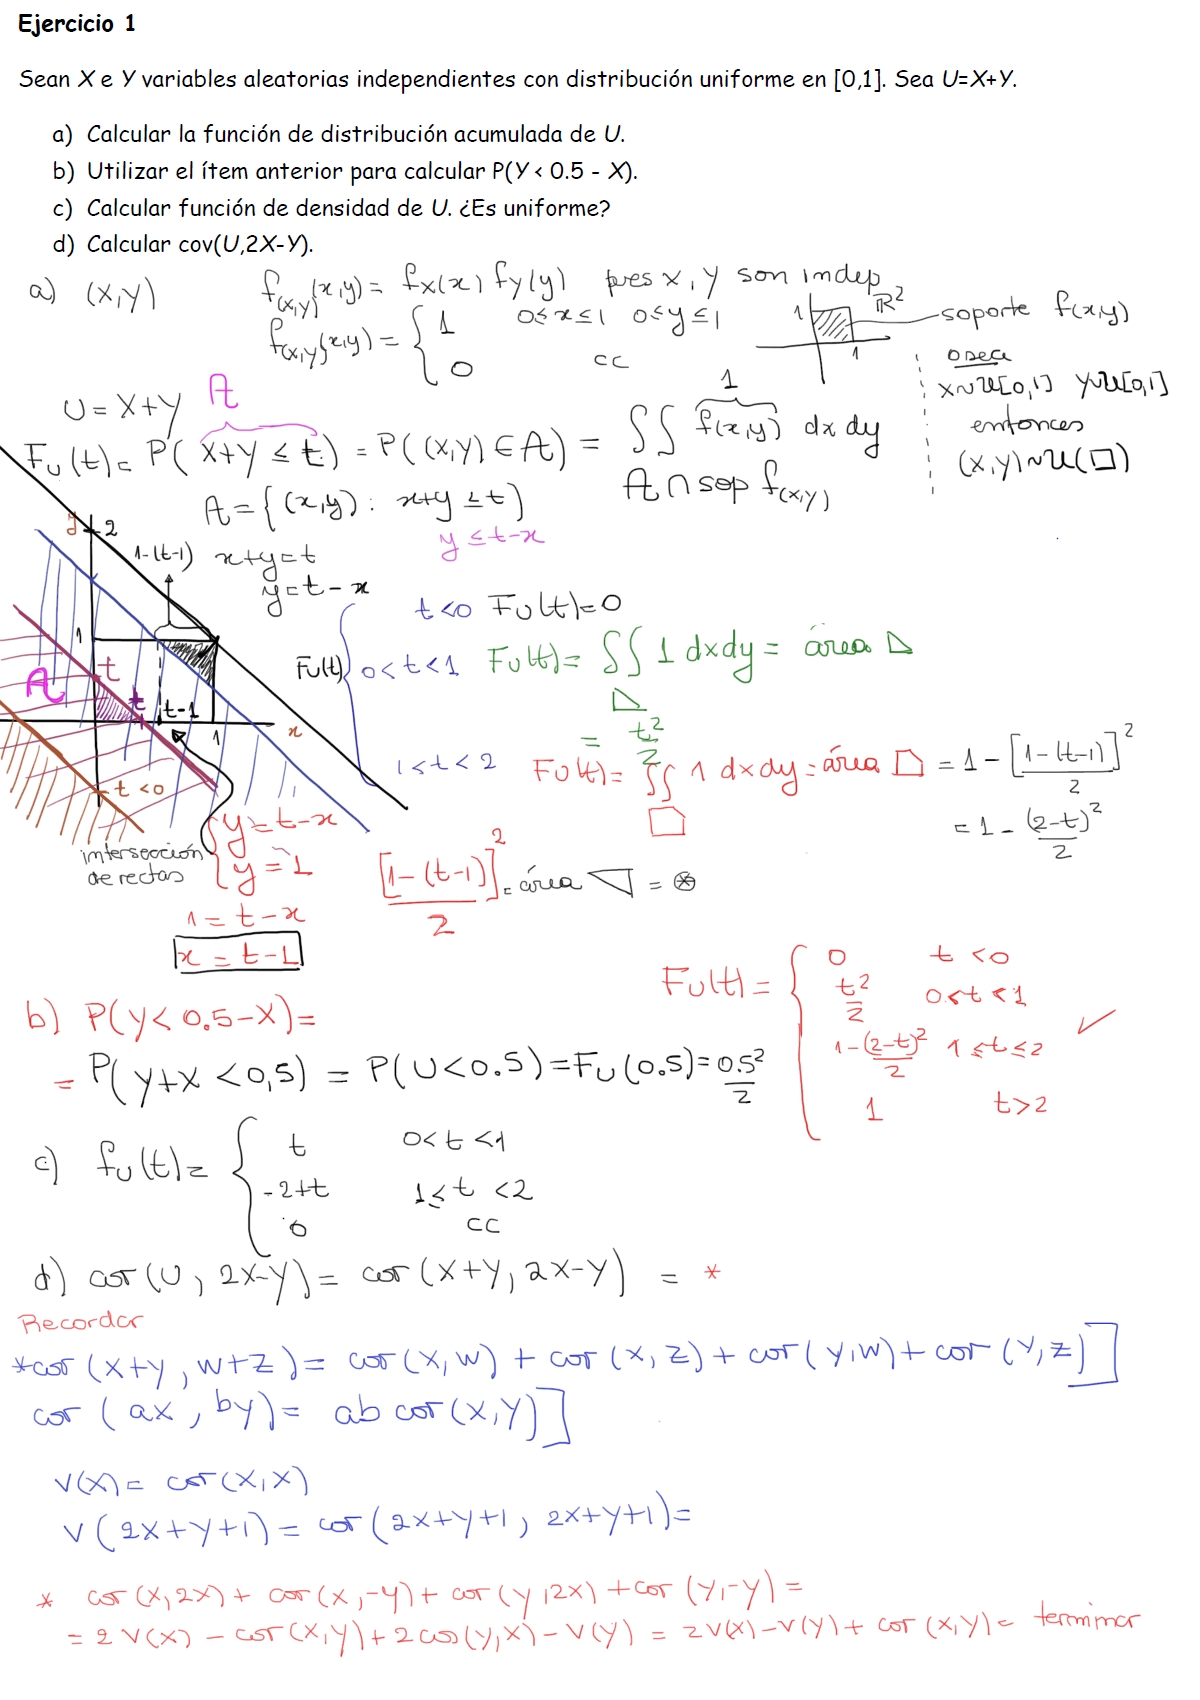 Ejercicio 1
Sean X e Y variables aleatorias independientes con distribución uniforme en [0,1]. Sea U=X+Y.
a) Calcular la función de distribución acumulada de U.
b) Utilizar el ítem anterior para calcular P(Y < 0.5 - X).
c) Calcular función de densidad de U. ¿Es uniforme?
d) Calcular cov(U,2X-Y).
a) (X,Y) f(x,y)(x,y) = fx(x) fy(y) pues x, y son indep
f(x,y)(x,y) = { 1 0≤x≤1 0≤y≤1
0 cc
1 1 ℝ² soporte f(x,y)
o sea
X~U[0,1] Y~U[0,1]
entonces
(X,Y)~U(□)
U = X+Y A 1
Fu(t) = P(x+y ≤ t) = P((X,Y) ∈ A) = ∬ f(x,y) dx dy
A ∩ sop f(x,y)
A = {(x,y) : x+y ≤ t}
y ≤ t-x
x+y=t
y=t-x
y 2
1-(t-1)
1
t
A
t t-1
1 x
t<0
Fu(t) { t<0 Fu(t)=0
0<t<1 Fu(t)= ∬ 1 dxdy = área ◺
= t²/2
1≤t<2 Fu(t)= ∬ 1 dxdy = área = 1 - [1-(t-1)]²/2
= 1 - (2-t)²/2
intersección de rectas
{ y=t-x
y=1
1=t-x
x = t-1
[1-(t-1)]²/2 = área ▽ = ⊛
Fu(t) = { 0 t<0
t²/2 0≤t<1
1-(2-t)²/2 1≤t≤2
1 t>2
✓
b) P(Y<0.5-X)=
= P(Y+X <0,5) = P(U<0.5)=Fu(0.5)=0.5²/2
c) fu(t)= { t 0<t<1
-2+t 1≤t<2
0 cc
d) cov(U, 2X-Y)= cov(X+Y, 2X-Y) = *
Recordar
*cov(X+Y, W+Z)= cov(X,W) + cov(X,Z)+ cov(Y,W)+ cov(Y,Z)]
cov(aX, bY)= ab cov(X,Y)]
V(X)= cov(X,X)
V(2X+Y+1)= cov(2X+Y+1, 2X+Y+1)=
* cov(X,2X)+ cov(X,-Y)+ cov(Y,2X)+cov(Y,-Y)=
=2V(X) - cov(X,Y)+2cov(Y,X)-V(Y) = 2V(X)-V(Y)+ cov(X,Y)= terminar